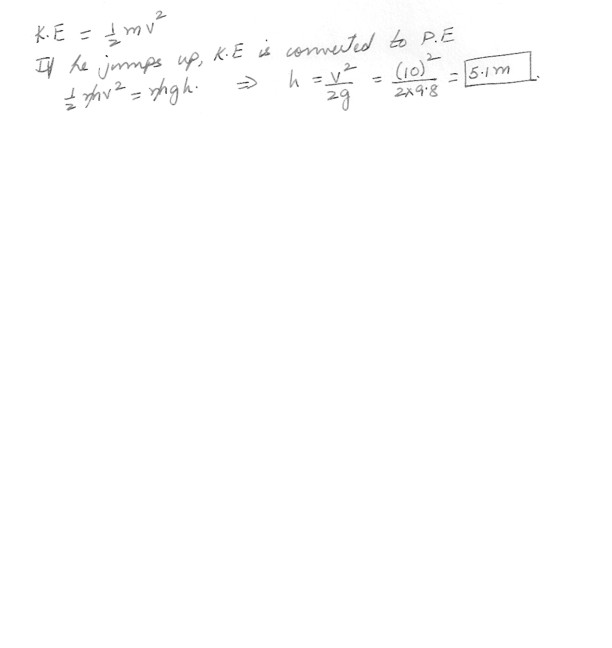 K.E = 1/2 mv²
If he jumps up, K.E is converted to P.E
1/2 mv² = mgh. ⇒ h = v²/2g = (10)²/2×9.8 = 5.1m.